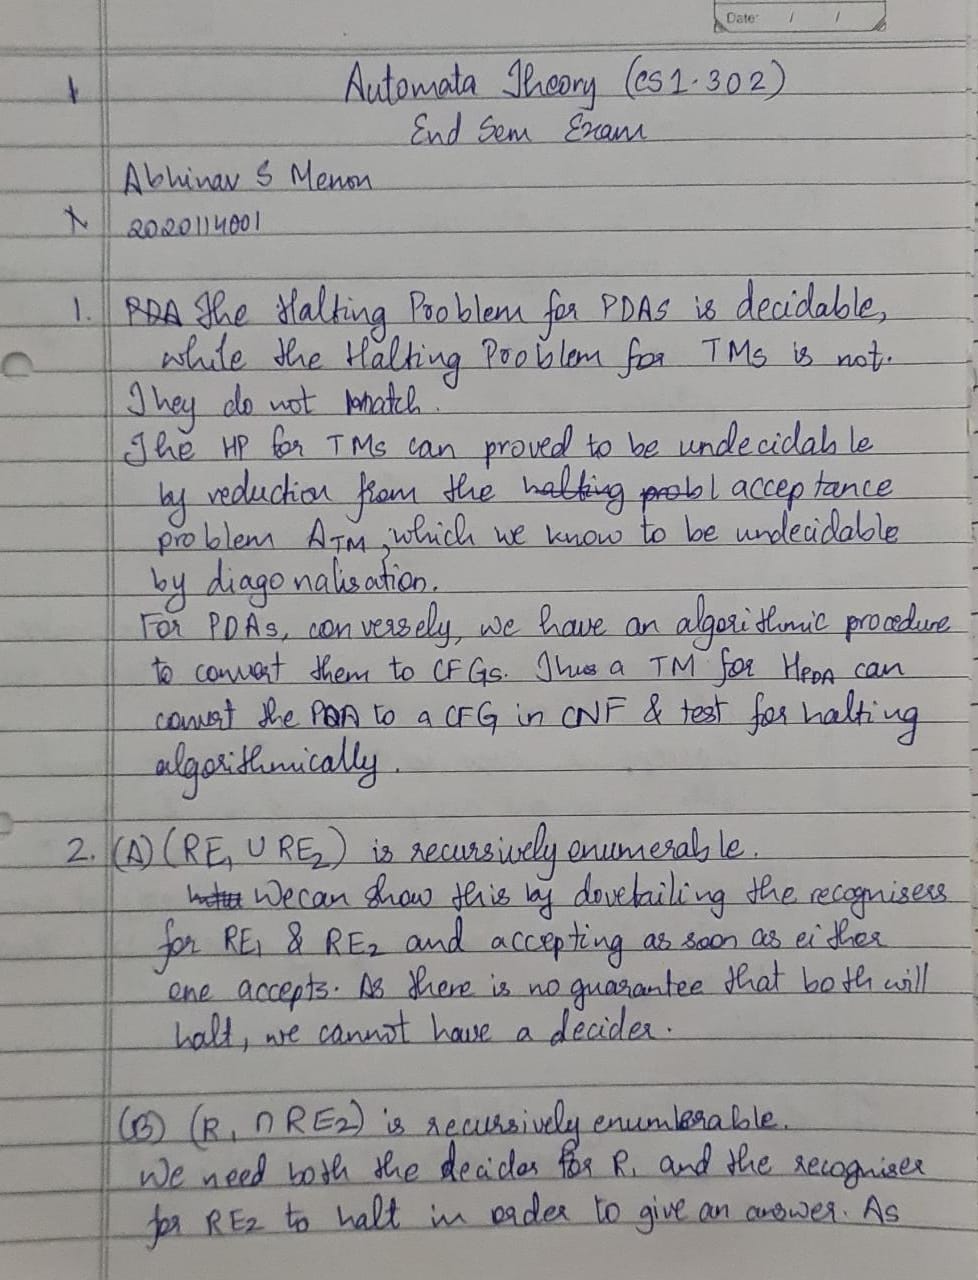 Date: / /
Automata Theory (CS1.302)
End Sem Exam
Abhinav S Menon
2020114001
1. PDA The Halting Problem for PDAs is decidable,
while the Halting Problem for TMs is not.
They do not match.
The HP for TMs can proved to be undecidable
by reduction from the halting probl acceptance
problem ATM, which we know to be undecidable
by diagonalisation.
For PDAs, conversely, we have an algorithmic procedure
to convert them to CFGs. Thus a TM for HPDA can
convert the PDA to a CFG in CNF & test for halting
algorithmically.
2. (A) (RE1 ∪ RE2) is recursively enumerable.
We can show this by dovetailing the recognisers
for RE1 & RE2 and accepting as soon as either
one accepts. As there is no guarantee that both will
halt, we cannot have a decider.
(B) (R1 ∩ RE2) is recursively enumerable.
We need both the decider for R1 and the recogniser
for RE2 to halt in order to give an answer. As